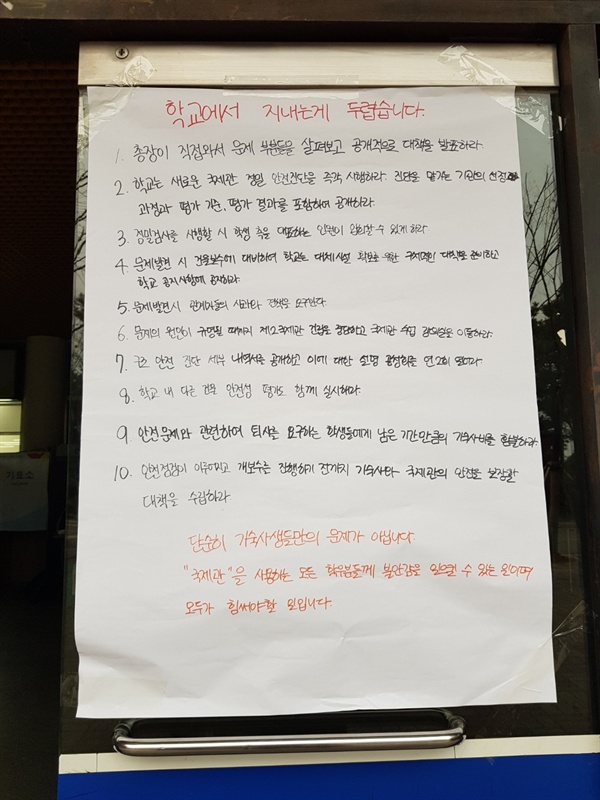 학교에서 지내는게 두렵습니다.
1. 총장이 직접와서 문제 부분들을 살펴보고 공개적으로 대책을 발표하라.
2. 학교는 새로운 국제관 정밀 안전진단을 즉각 시행하라. 진단을 맡기는 기관의 선정
과정과 평가 기준, 평가 결과를 포함하여 공개하라.
3. 정밀검사를 시행할 시 학생 측을 대표하는 인원이 입회할 수 있게 하라
4. 문제발견 시 건물보수에 대비하여 학교는 대체시설 확보를 위한 구체적인 대책을 준비하고
학교 공지사항에 공지하라.
5. 문제발견시 관계자들의 사과와 전책을 요구한다
6. 문제의 원인이 규명될 때까지 제2국제관 건설을 중단하고 국제관 수업 강의실을 이동하라.
7. 구조 안전 진단 세부 내역서를 공개하고 이에 대한 설명 공청회를 연 2회 열어라
8. 학교 내 다른 건물 안전성 평가도 함께 실시하라.
9. 안전문제와 관련하여 퇴사를 요구하는 학생들에게 남은 기간만큼의 기숙사비를 환불하라.
10. 안전점검이 이루어지고 개보수를 진행하기 전까지 기숙사와 국제관의 안전을 보장할
대책을 수립하라
단순히 기숙사생들만의 문제가 아닙니다
"국제관"을 사용하는 모든 학우분들께 불안감을 일으킬 수 있는 일이며
모두가 힘써야할 일입니다.
기표소